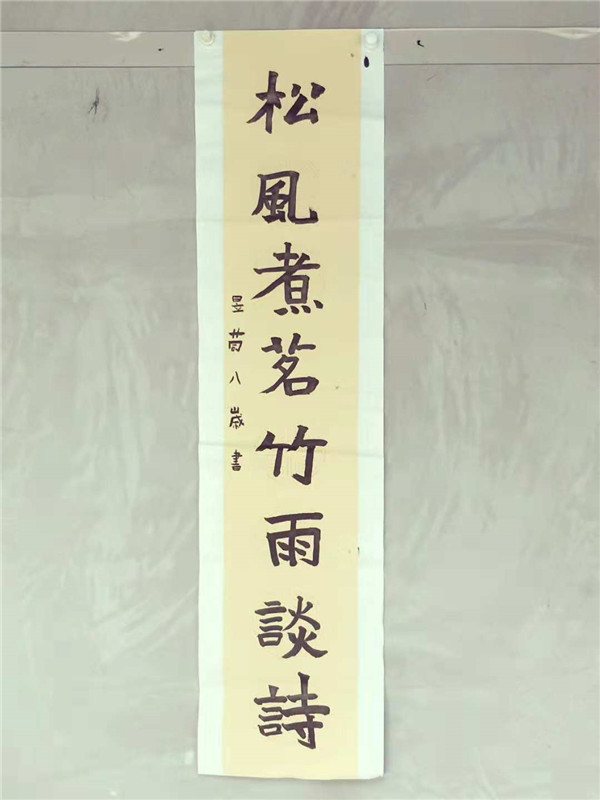 松風煮茗竹雨談詩
昱茜八歲書